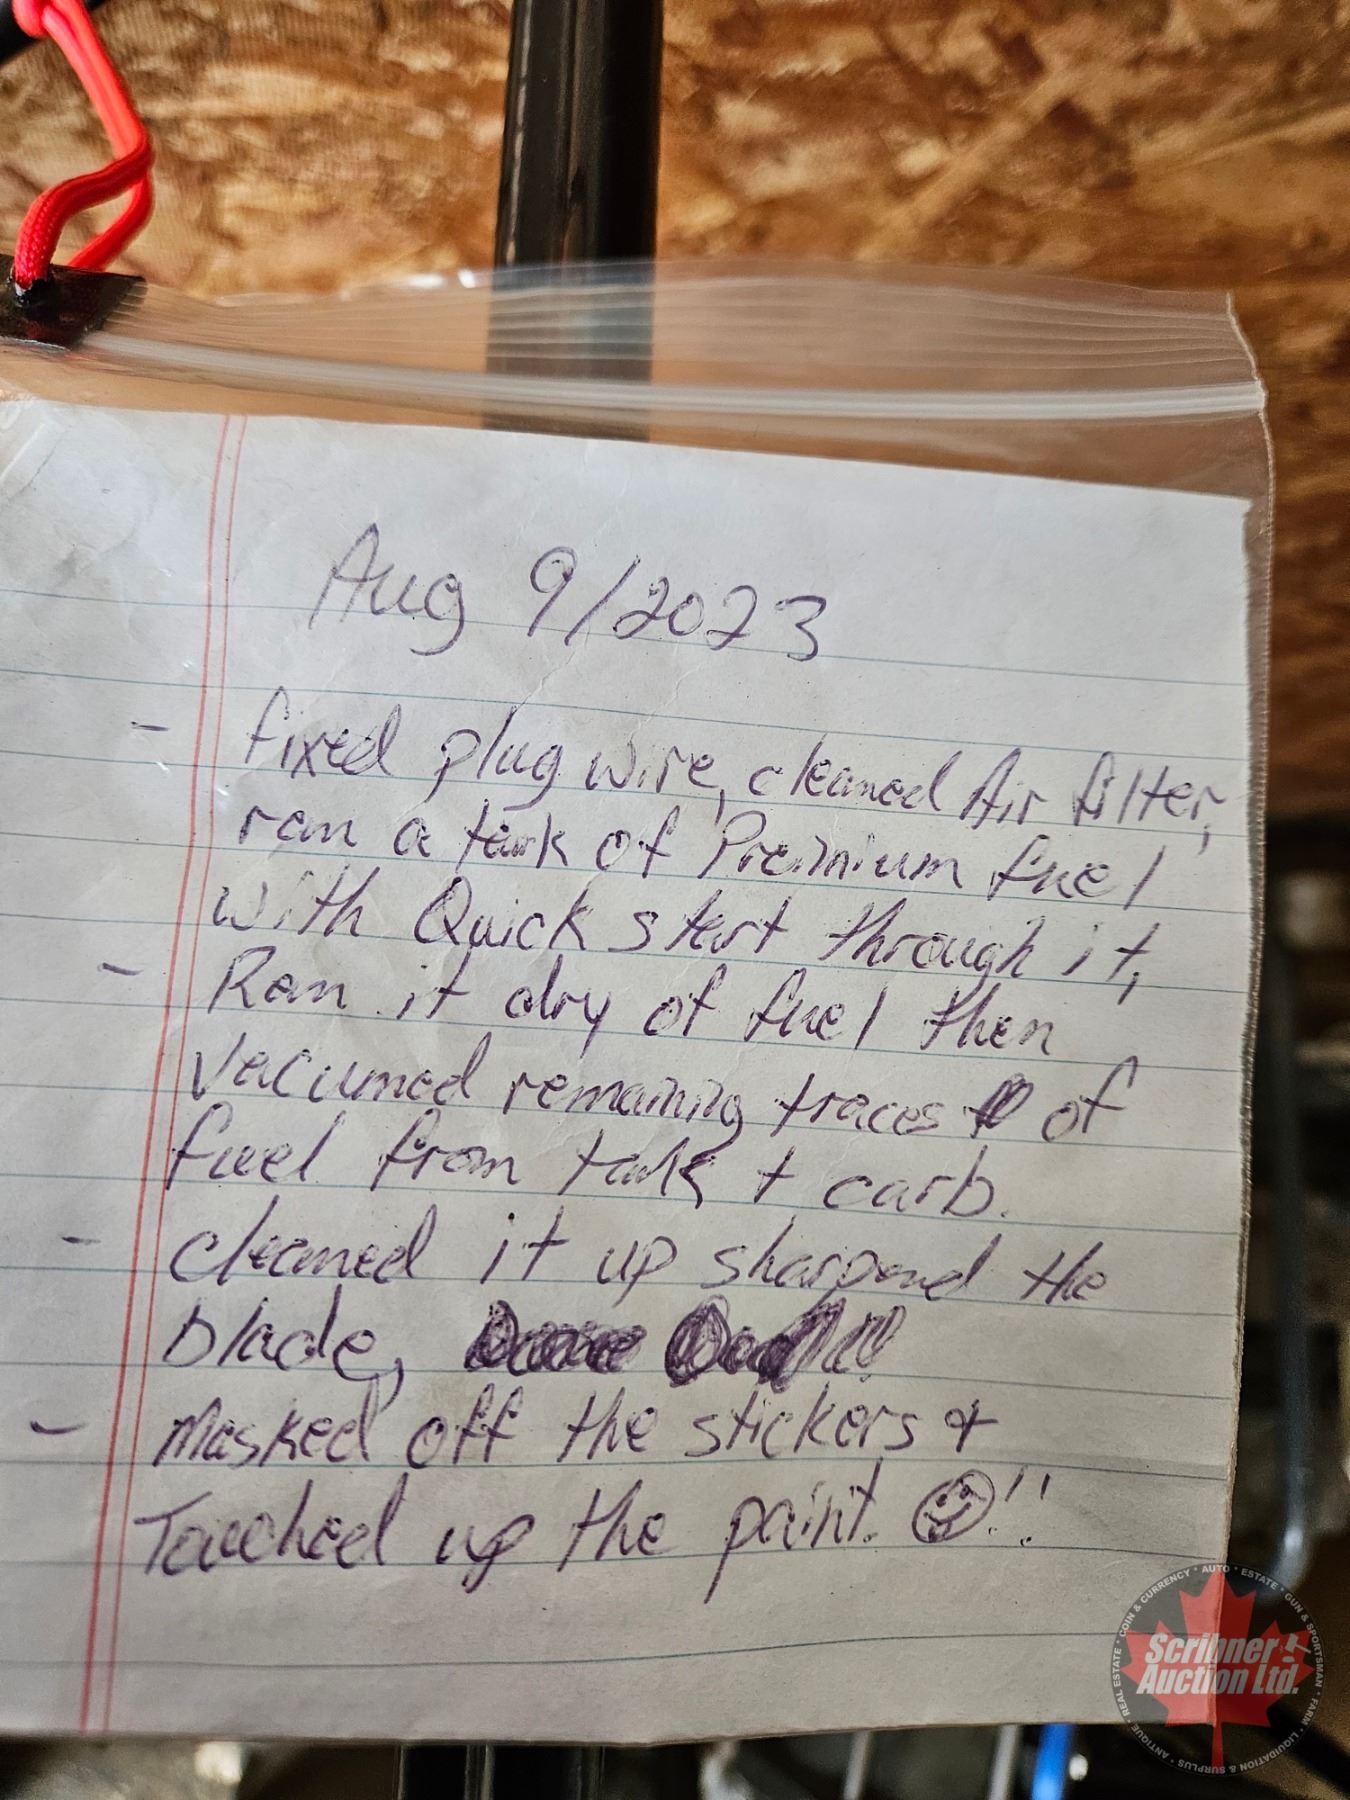 Aug 9/2023
- fixed plug wire, cleaned Air filter,
ran a tank of Premium fuel
with Quick start through it,
- Ran it dry of fuel then
vacumed remaining traces of
fuel from tank + carb.
- cleaned it up sharpend the
blade,
- Masked off the stickers &
Touched up the paint. !!
Scribner
Auction Ltd.
ANTIQUE • REAL ESTATE • COIN & CURRENCY • AUTO • ESTATE • GUN & SPORTSMAN • FARM • LIQUIDATION & SURPLUS •